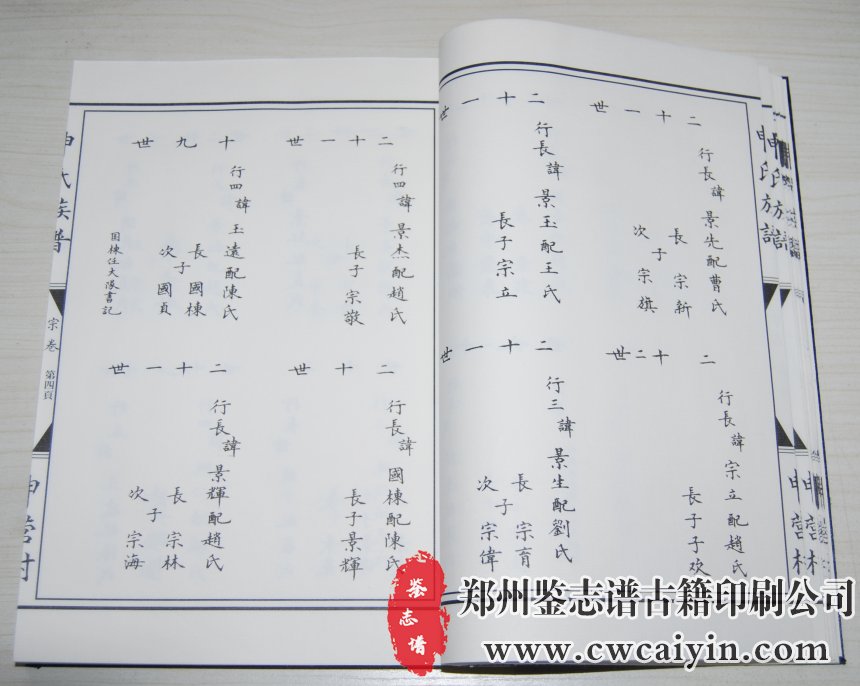 二十一世
行長諱景先配曹氏
長 宗新
子
次 宗旗
二十一世
行長諱景玉配王氏
長子宗立
二十二世
行長諱宗立配趙氏
長子子欢
二十一世
行三諱景生配劉氏
長 宗育
子
次 宗偉
二十一世
行四諱景杰配趙氏
長子宗敬
十九世
行四諱玉遠配陳氏
長 國棟
子
次 國貞
国棟任大隊書記
二十世
行長諱國棟配陳氏
長子景輝
二十一世
行長諱景輝配趙氏
長 宗林
子
次 宗海
申氏族譜
宗卷
第四頁
申营村
鉴志谱
郑州鉴志谱古籍印刷公司
www.cwcaiyin.com